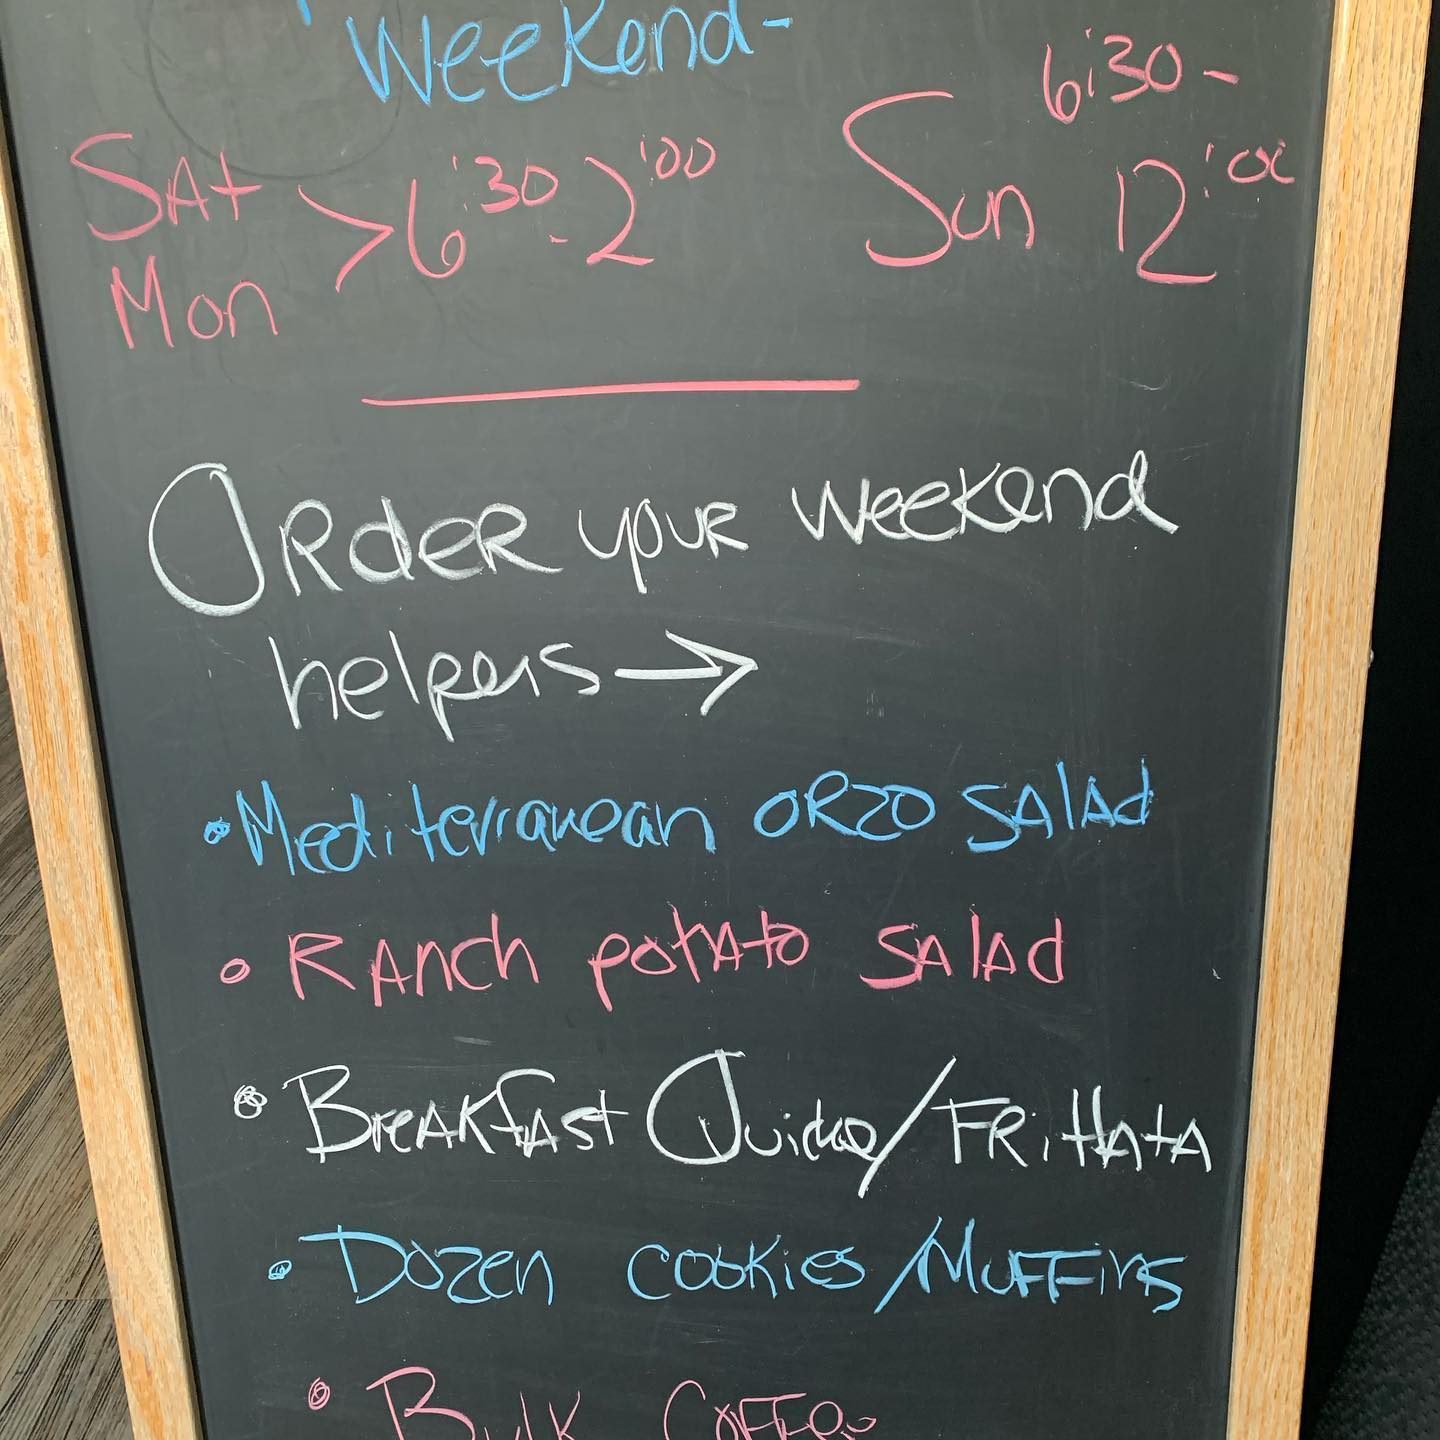 Weekend-
Sat > 6:30-2:00 Sun 6:30-
Mon 12:00
Order your weekend
helpers →
• Mediterranean orzo salad
• Ranch potato salad
• Breakfast Quiche/Frittata
• Dozen cookies/Muffins
• Bulk Coffee